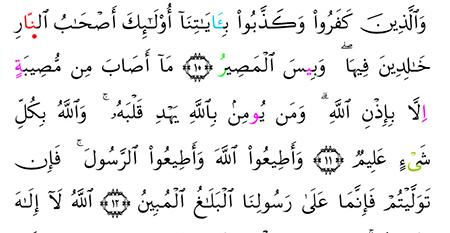 وَالَّذِينَ كَفَرُواْ وَكَذَّبُواْ بِـَٔايَٰتِنَآ أُوْلَٰٓئِكَ أَصْحَٰبُ النَّارِ
خَٰلِدِينَ فِيهَا ۖ وَبِيسَ الْمَصِيرُ ﴿١٠﴾ مَآ أَصَابَ مِن مُّصِيبَةٍ
اِلَّا بِإِذْنِ اللَّهِ ۗ وَمَن يُومِنۢ بِاللَّهِ يَهْدِ قَلْبَهُۥ ۚ وَاللَّهُ بِكُلِّ
شَىْءٍ عَلِيمٌ ﴿١١﴾ وَأَطِيعُواْ اللَّهَ وَأَطِيعُواْ الرَّسُولَ ۚ فَإِن
تَوَلَّيْتُمْ فَإِنَّمَا عَلَىٰ رَسُولِنَا الْبَلَٰغُ الْمُبِينُ ﴿١٢﴾ اللَّهُ لَآ إِلَٰهَ